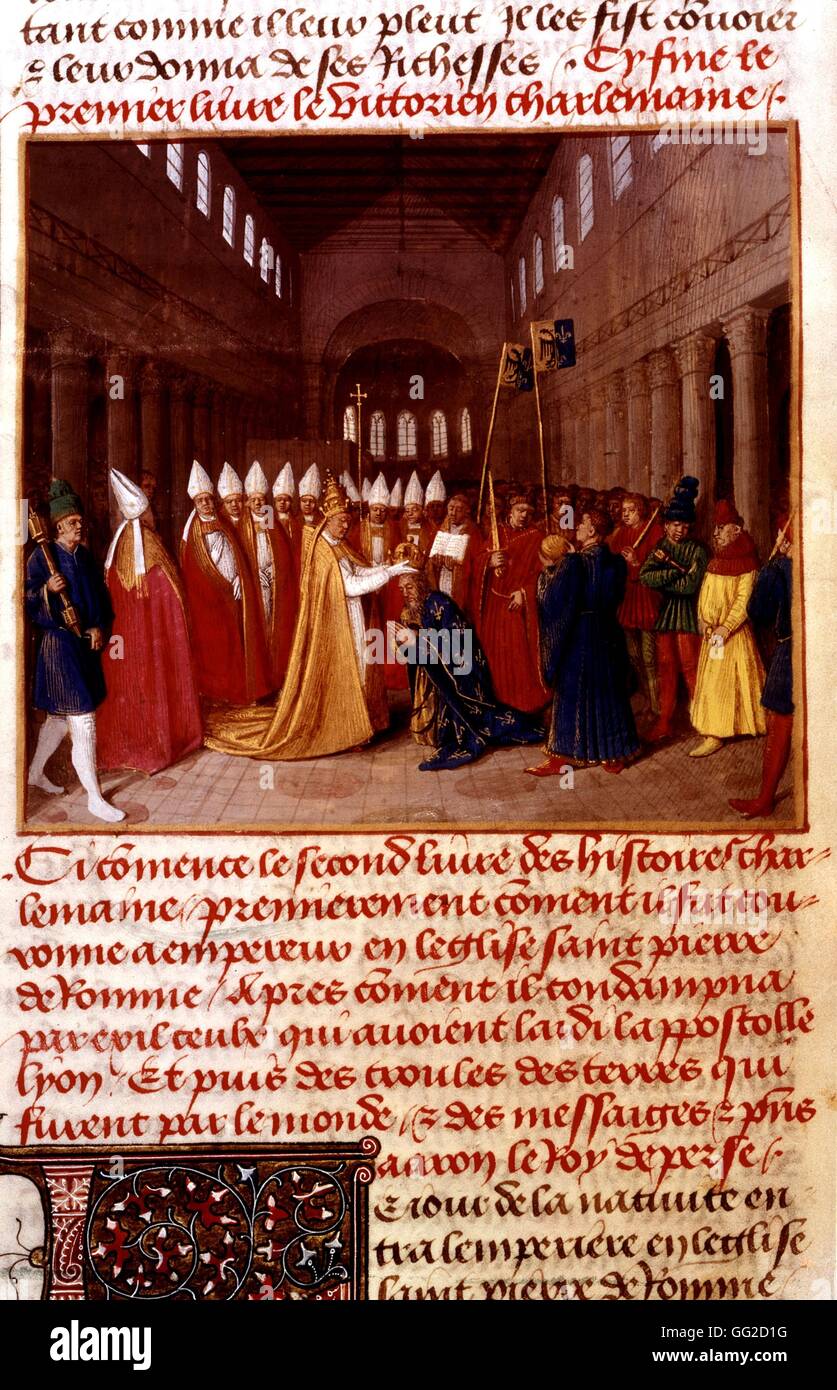 tant comme il leur pleut Il les fist cōvoier
⁊ leur donna de ses Richesses . Cy fine le
premier livre le victorien charlemaine /.
. Ci cōmence le second livre des histoires char-
lemaine / premierement cōment il fut cou-
ronne a empereur en leglise saint pierre
de Romme / Apres cōment il condampna
par exil ceulx qui avoient lardi lappostolle
lyon / Et puis des croules des terres qui
furent par le monde / ⁊ des messaiges ⁊ pñs
aaron le Roy de perse /.
LE iour de la nativite en
tra lemperere en leglise
saint pierre de Romme
alamy stock photo
a alamy stock photo
GG2D1G
www.alamy.com